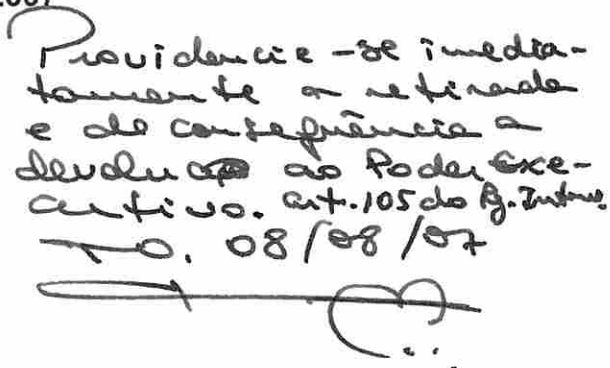 Providencie-se imedia-
tamente a retirada
e de consequência a
devolução ao Poder Exe-
cutivo. art. 105 do Rg. Interno.
TO. 08/08/07